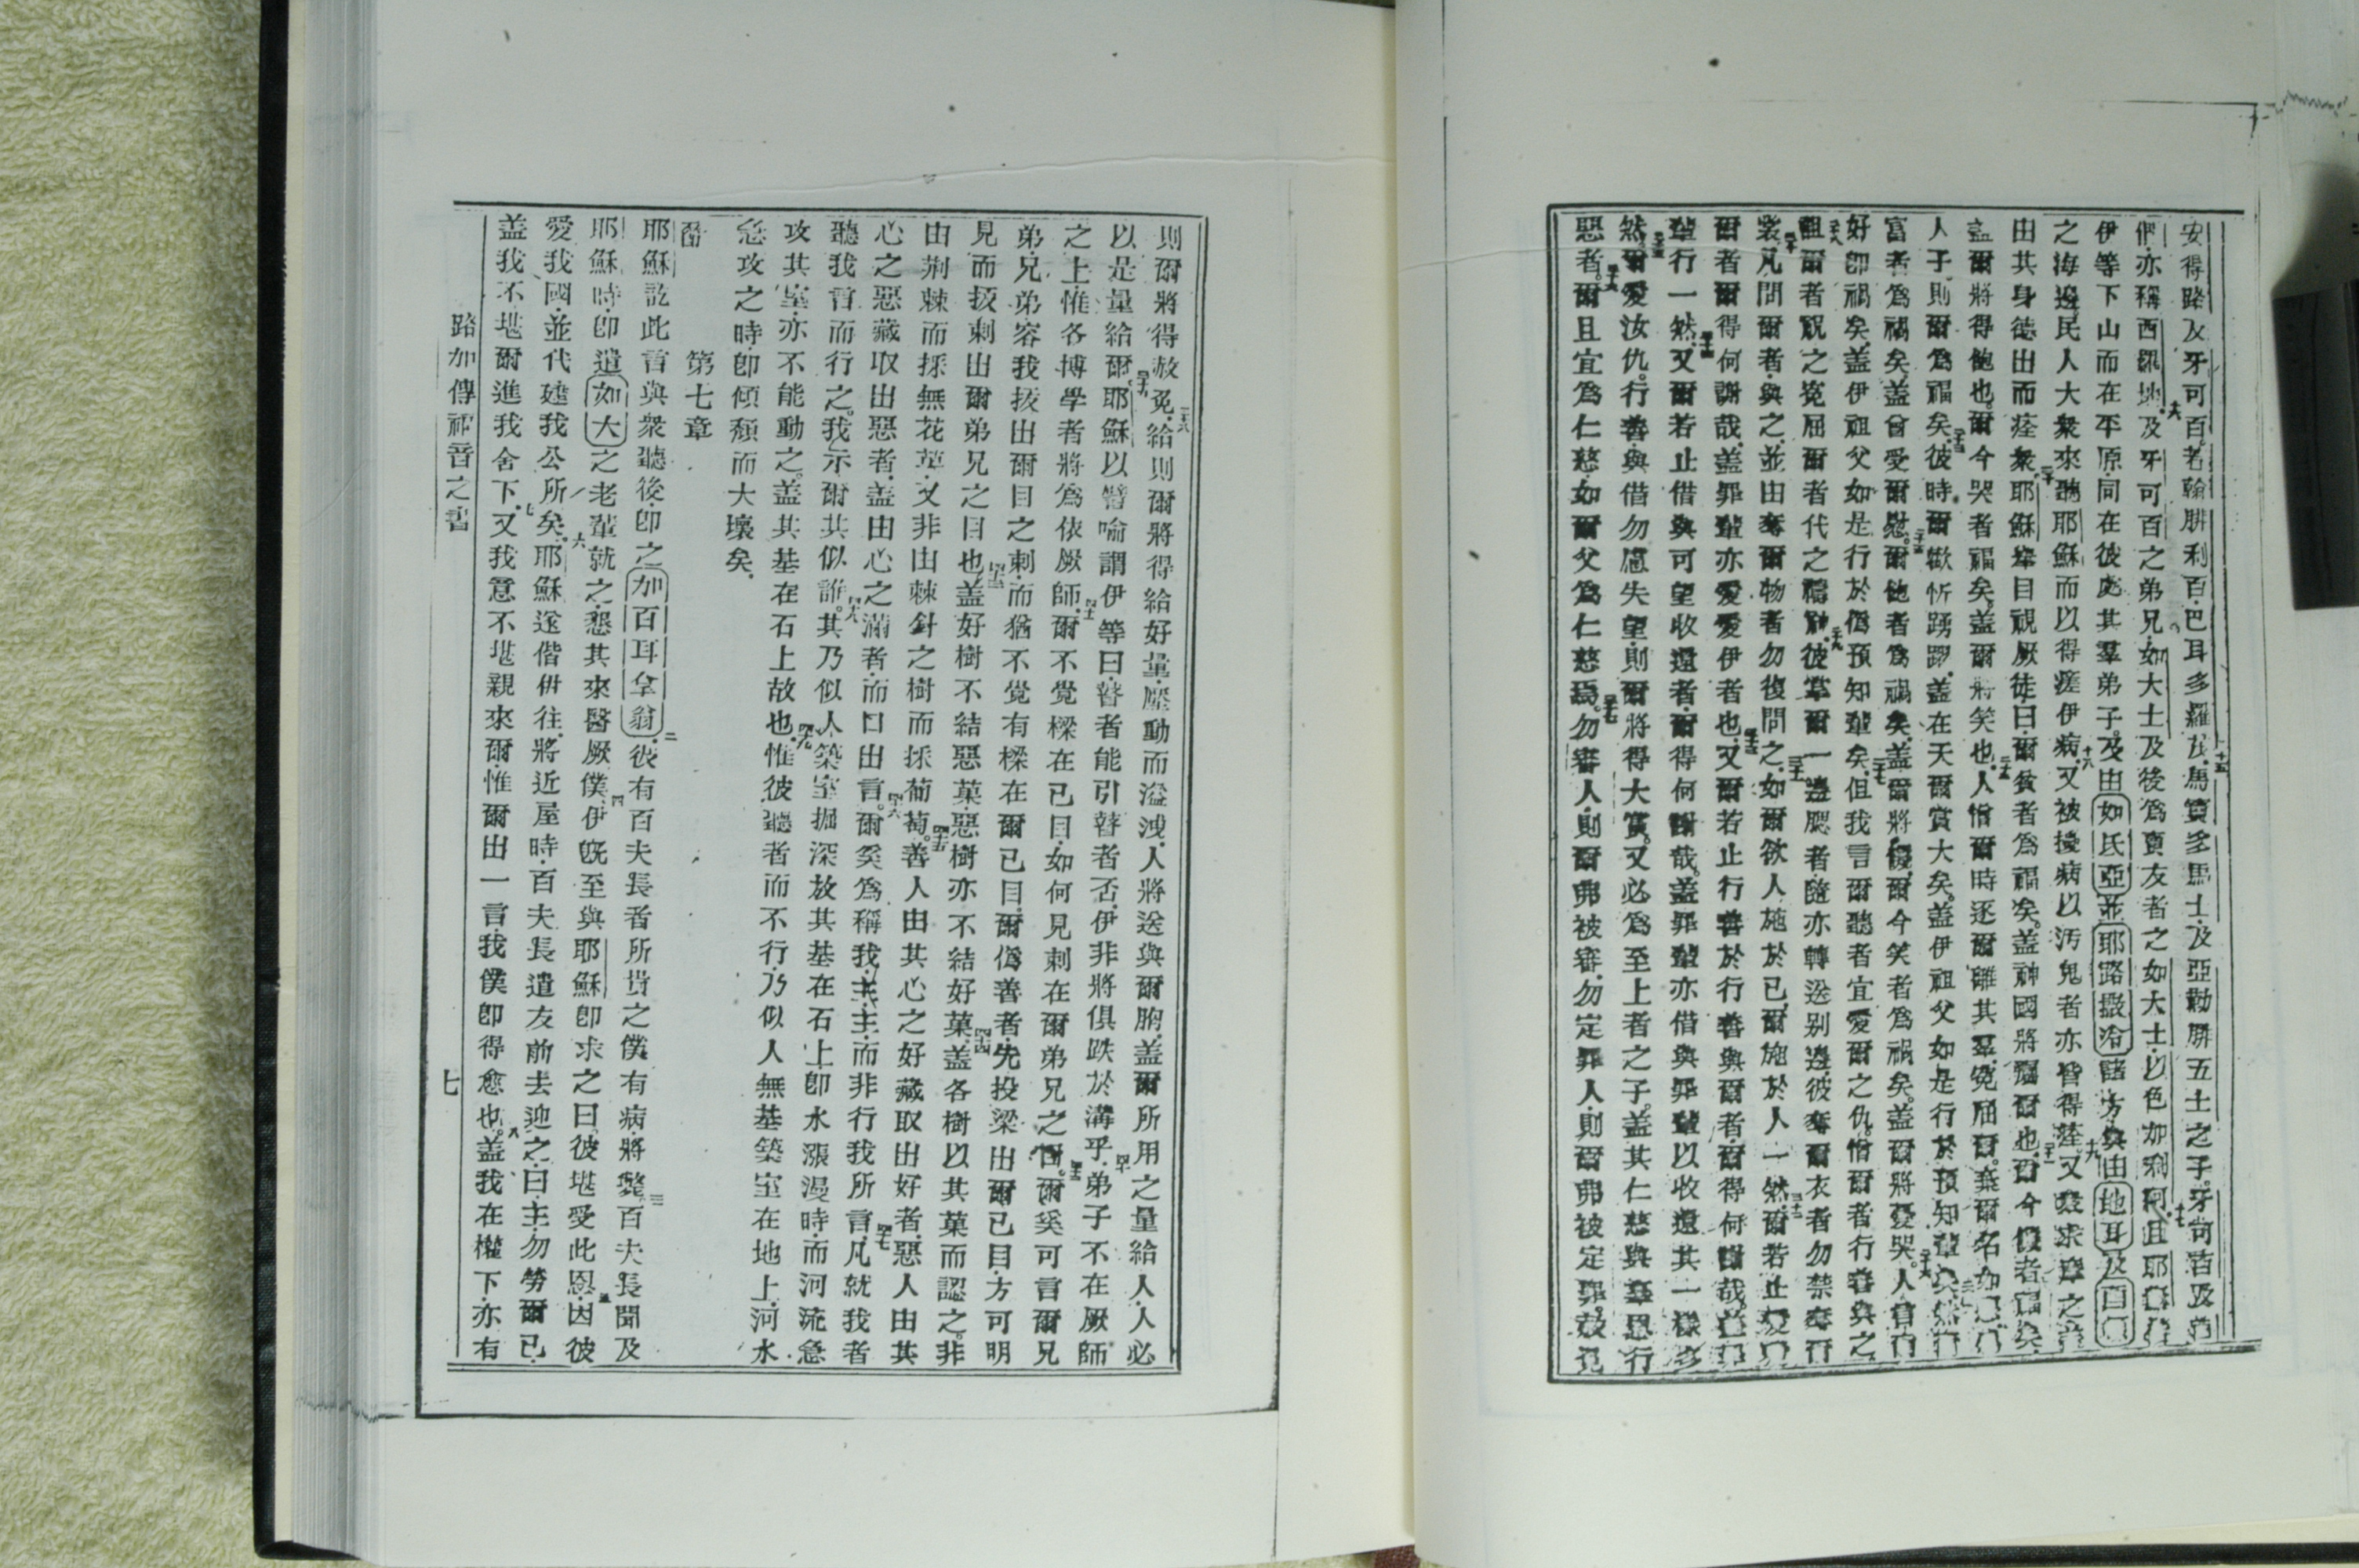 安得路及牙可百若翰腓利百巴耳多羅茂馬竇多馬士及亞勒腓五士之子牙可百及
們亦稱西羅地及牙可百之弟兄如大士及後為賣友者之如大士以色加利阿且耶
伊等下山而在平原同在彼處其羣弟子及由如氏亞並耶路撒冷諸方與由地耳及
之海邊民人大衆來聽耶穌而以得瘥伊病又被擾病以污鬼者亦皆得瘥又衆求摩之
由其身德出而痊衆耶穌舉目視厥徒曰爾貧者為福矣蓋神國將屬爾也爾今餓者福矣
蓋爾將得飽也爾今哭者福矣蓋爾將笑也人憎爾時逐爾離其羣冤屈爾棄爾名如
人子則爾為福矣彼時爾歡忻踴躍蓋在天爾賞大矣蓋伊祖父如是行於預知輩矣
富者為禍矣蓋曾受爾慰爾飽者為禍矣蓋爾將餓爾今笑者為禍矣蓋爾將憂哭人
好即禍矣蓋伊祖父如是行於偽預知輩矣但我言爾聽者宜愛爾之仇憎爾者行善與之
詛爾者祝之冤屈爾者代之禱神彼掌爾一邊腮者隨亦轉送別邊彼奪爾衣者勿禁奪
裳凡問爾者與之並由奪爾物者勿復問之如爾欲人施於己爾施於人一然爾若止愛
爾者爾得何謝哉蓋罪輩亦愛愛伊者也又爾若止行善於行善與爾者爾得何謝哉
輩行一然又爾若止借與可望收還者爾得何謝哉蓋罪輩亦借與罪輩以收還其一樣多
然爾愛汝仇行善與借勿慮失望則爾將得大賞又必為至上者之子蓋其仁慈與辜恩行
惡者爾且宜為仁慈如爾父為仁慈焉勿審人則爾弗被審勿定罪人則爾弗被定罪
則爾將得赦免給則爾將得給好量壓動而溢洩人將送與爾胸蓋爾所用之量給人人必
以是量給爾耶穌以譬喻謂伊等曰瞽者能引瞽者否伊非將俱跌於溝乎弟子不在厥師
之上惟各博學者將為依厥師爾不覺樑在己目如何見刺在爾弟兄之目爾奚可言爾兄
弟兄弟容我拔出爾目之刺而猶不覺有樑在爾己目爾偽善者先投梁出爾己目方可明
見而拔刺出爾弟兄之目也蓋好樹不結惡菓惡樹亦不結好菓蓋各樹以其菓而認之非
由荆棘而採無花菓又非由棘針之樹而採葡萄善人由其心之好藏取出好者惡人由其
心之惡藏取出惡者蓋由心之滿者而口出言爾奚為稱我主主而非行我所言凡就我者
聽我言而行之我示爾其似誰其乃似人築室掘深放其基在石上即水漲漫時而河流急
攻其室亦不能動之蓋其基在石上故也惟彼聽者而不行乃似人無基築室在地上河水
急攻之時即傾頽而大壞矣
第七章
耶穌訖此言與衆聽後即之加百耳拿翁彼有百夫長者所貴之僕有病將斃百夫長聞及
耶穌時即遣如大之老輩就之懇其來醫厥僕伊旣至與耶穌即求之曰彼堪受此恩因彼
愛我國並代建我公所矣耶穌遂偕伊往將近屋時百夫長遣友前去迎之曰主勿勞爾已
蓋我不堪爾進我舍下又我意不堪親來爾惟爾出一言我僕即得愈也蓋我在權下亦有
路加傳福音之書
七